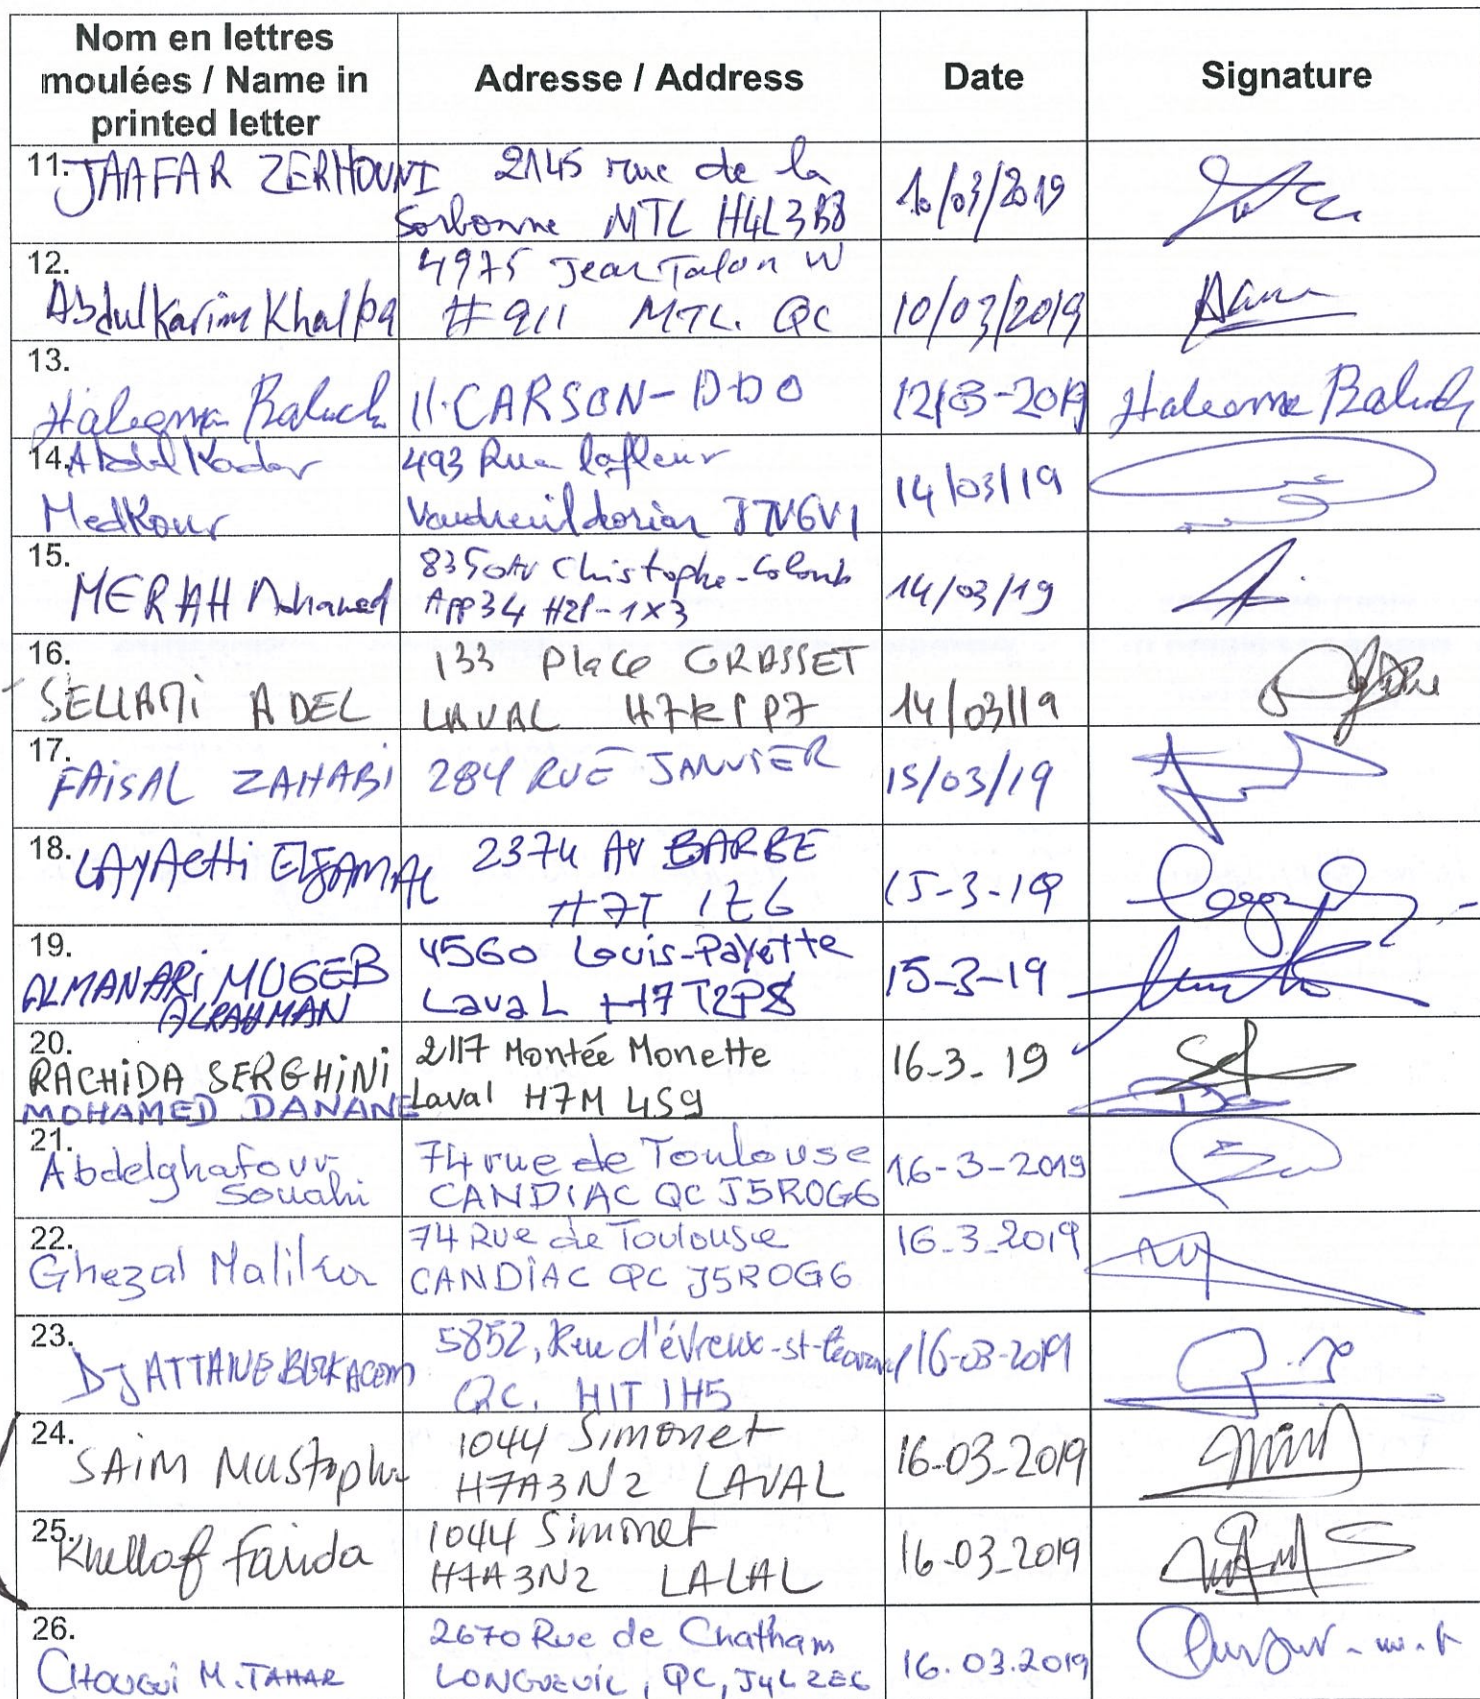 Nom en lettres
moulées / Name in
printed letter
Adresse / Address
Date
Signature
11. JAAFAR ZERHOUNI 2145 rue de la
Sorbonne MTL H4L3B8
10/03/2019
12.
Abdulkarim Khalba
4975 Jean Talon W
#911 MTL. QC
10/03/2019
13.
Haleema Baluch
11. CARSON-DDO
12/03-2019
Haleema Baluch
14. Abdelkader
Medkour
493 Rue lafleur
Vaudreuildorion J7V6V1
14/03/19
15.
MERAH Mohamed
8350 Av Christophe-Colomb
App34 H2P-1X3
14/03/19
16.
SELLAMi ADEL
133 Place GRASSET
LAVAL H7K
14/03/19
17.
FAiSAL ZAHABi
284 RUE JANVIER
15/03/19
18. LAYACHi ELJAMAL
2374 AV BARBE
H7T 1Z6
15-3-19
19.
ALMANARi MUGEB
ALRAHMAN
4560 Louis-Payette
LavaL H7T2P8
15-3-19
20.
RACHiDA SERGHiNi
MOHAMED DANANE
2117 Montée Monette
Laval H7M 4S9
16-3-19
21.
Abdelghafour
Souahi
74 rue de Toulouse
CANDIAC QC J5R0G6
16-3-2019
22.
Ghezal Malika
74 Rue de Toulouse
CANDIAC QC J5R0G6
16-3-2019
23.
DJATTANE BELKACEM
5852, Rue d'évreux-st-léonard
QC, H1T 1H5
16-03-2019
24.
SAiM Mustapha
1044 Simonet
H7A3N2 LAVAL
16-03-2019
25.
Khellof Farida
1044 Simonet
H7A3N2 LALAL
16-03-2019
26.
CHOUGUi M. TAHAR
2670 Rue de Chatham
LONGUEUIL, QC, J4L2E6
16.03.2019